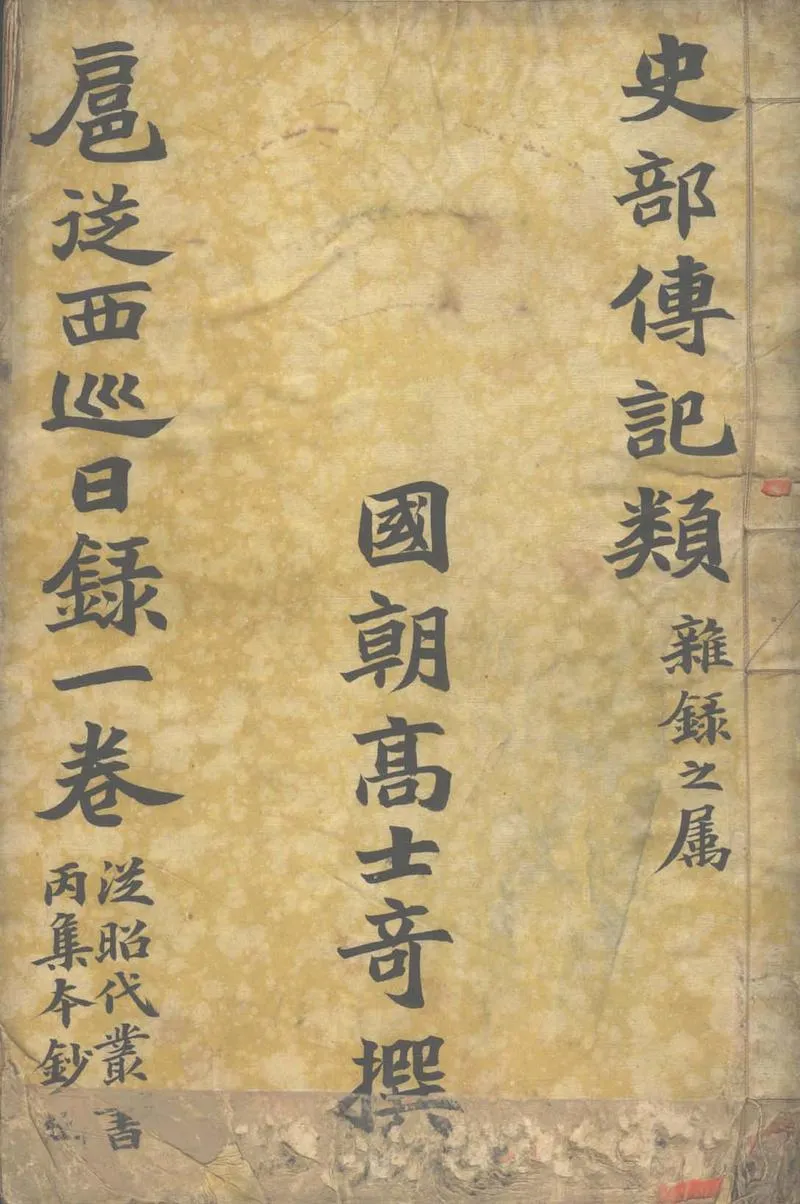 史部傳記類 雜録之属
國朝高士竒撰
扈從西巡日録一卷
從昭代叢書
丙集本鈔